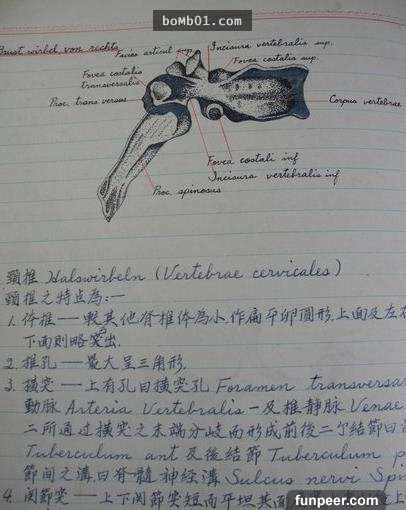 bomb01.com
Brust wirbel von rechts
Facies articul sup.
Incisura vertebralis sup.
Fovea costalis sup
Fovea costalis
transversalis
Proc. transversus
Corpus vertebrae
Fovea costali inf
Incisura vertebralis inf
Proc. spinosus
頸椎 Halswirbeln (Vertebrae cervicales)
頸椎之特点為:—
1. 体椎 — 較其他脊椎体為小,作扁平卵圓形,上面及左右
下面則略突出.
2. 椎孔 — 最大呈三角形.
3. 橫突 — 上有孔曰橫突孔 Foramen transversa
動脈 Arteria Vertebralis 一及椎静脉 Venae
二所通过橫突之末端分歧而形成前後二个結節曰
Tuberculum ant 及後結節 Tuberculum p
節间之溝曰脊髓神经溝 Sulcus nervi Spi
4. 関節突 — 上下関節突短而平坦其面
funpeer.com